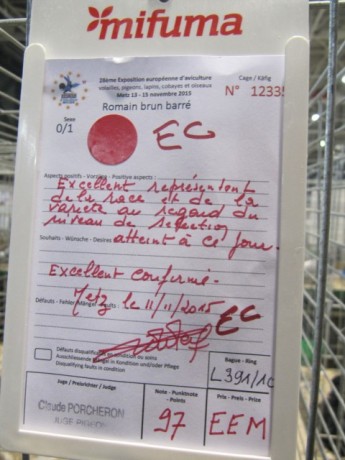 mifuma
28ème Exposition européenne d'aviculture
volailles, pigeons, lapins, cobayes et oiseaux
Metz 13 - 15 novembre 2015
Cage / Käfig
N° 12335
Romain brun barré
Sexe
0/1
EC
Aspects positifs - Vorzüge - Positive aspects :
Excellent représentant
de la race et de la
variété au regard du
niveau de sélection
Souhaits - Wünsche - Desires
atteint à ce jour.
Excellent confirmé.
Metz le 11/11/2015
Défauts - Fehler/Mängel
EC
Défauts Disqualificatifs en condition ou soins
Ausschliessende Mängel in Kondition und/oder Pflege
Disqualifying faults in condition
Bague - Ring
L391/10
Juge / Preisrichter / Judge
Note - Punktnote
- Points
Prix - Preis - Price
Claude PORCHERON
97
EEM